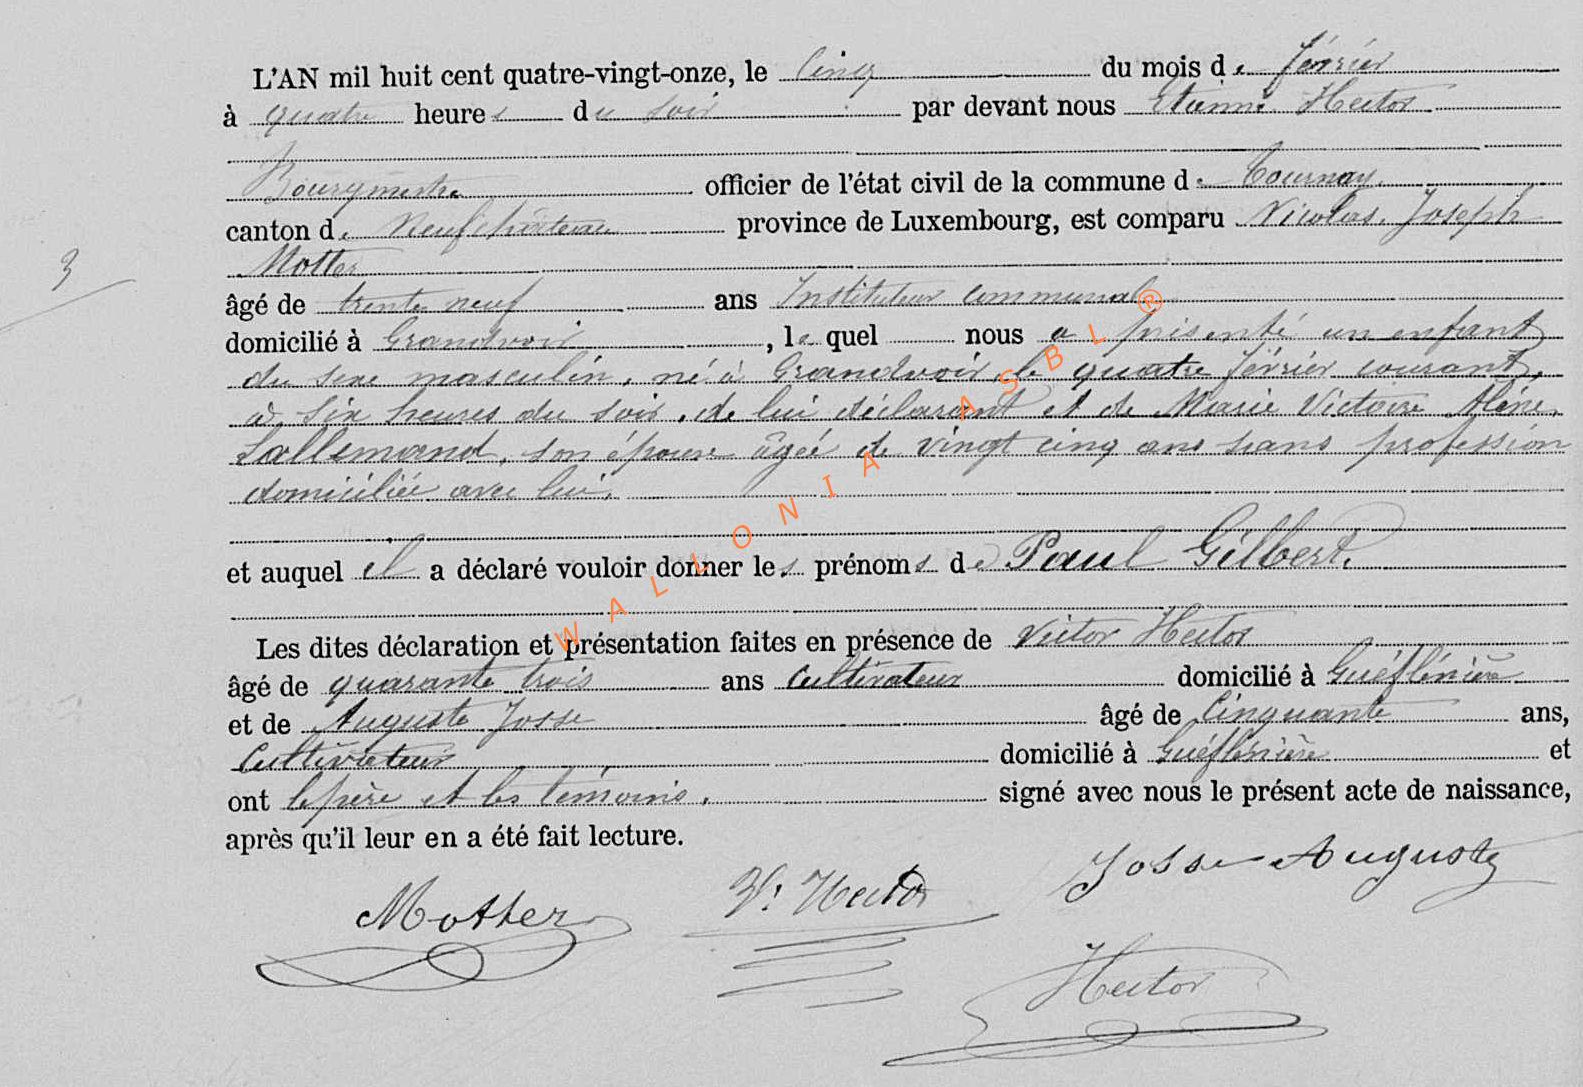 L'AN mil huit cent quatre-vingt-onze, le Cinq du mois de février
à quatre heures du soir par devant nous Etienne Hector
Bourgmestre officier de l'état civil de la commune de Tournay,
canton de Neufchâteau province de Luxembourg, est comparu Nicolas, Joseph
3
Motter
âgé de trente neuf ans Instituteur communal
domicilié à Grandvoir, lequel nous a présenté un enfant
du sexe masculin, né à Grandvoir, le quatre février courant,
à six heures du soir, de lui déclarant et de Marie Victoire Aline,
Lallemand, son épouse âgée de vingt cinq ans sans profession
domiciliée avec lui,
et auquel il a déclaré vouloir donner les prénoms de Paul Gilbert.
Les dites déclaration et présentation faites en présence de Victor Hector
âgé de quarante trois ans Cultivateur domicilié à
et de Auguste Josse âgé de Cinquante ans,
Cultivateur domicilié à et
ont le père et les témoins, signé avec nous le présent acte de naissance,
après qu'il leur en a été fait lecture.
Motter V. Hector Josse Auguste
Hector
WALLONIA ASBL ®